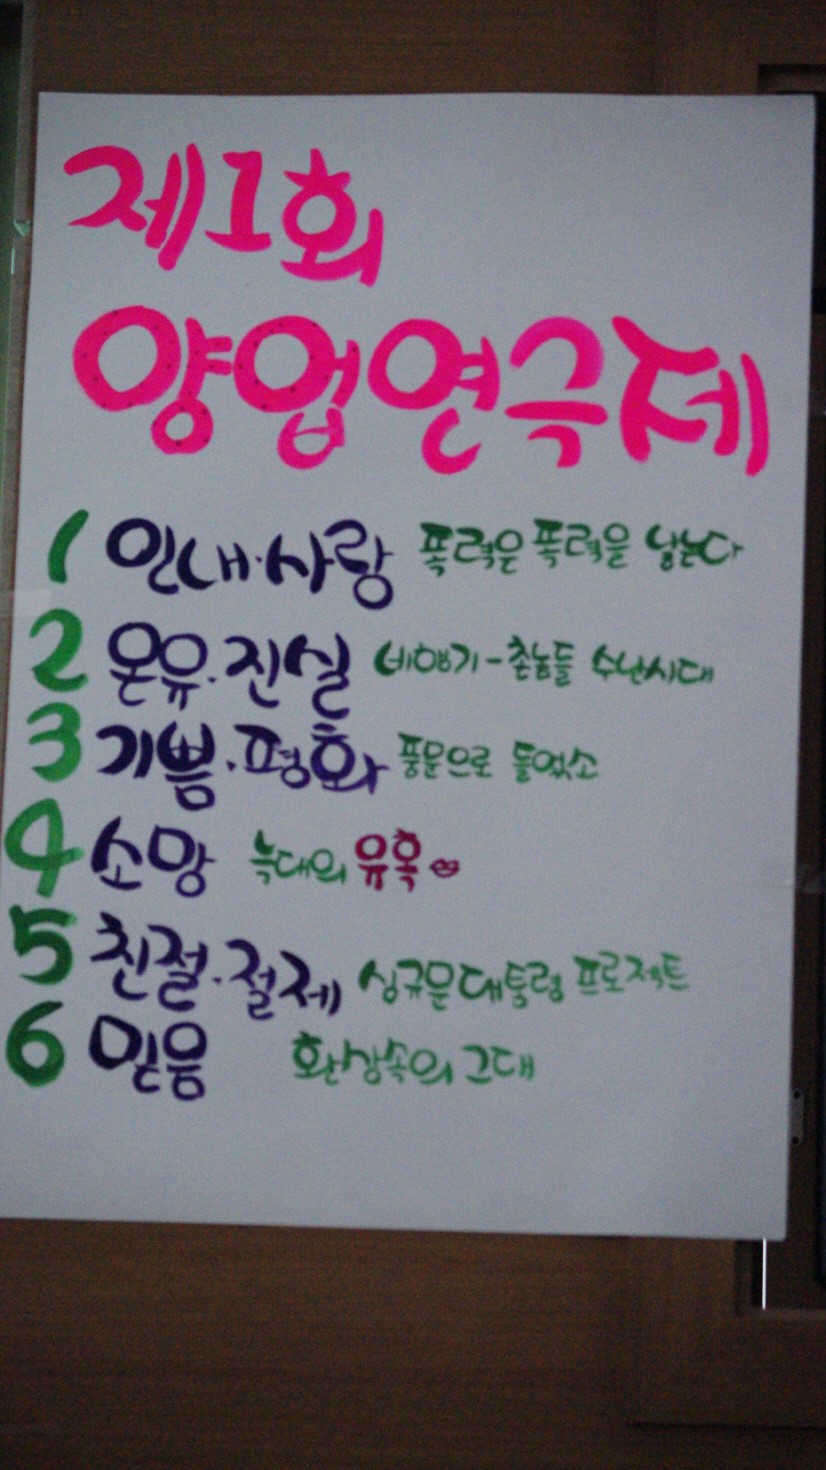 제1회
양업연극제
1 인내·사랑 폭력은 폭력을 낳는다
2 온유·진실 비행기-촌놈들 수난시대
3 기쁨·평화 풍문으로 들었소
4 소망 늑대의 유혹
5 친절·절제 싱규문대통령 프로젝트
6 믿음 환상속의 그대